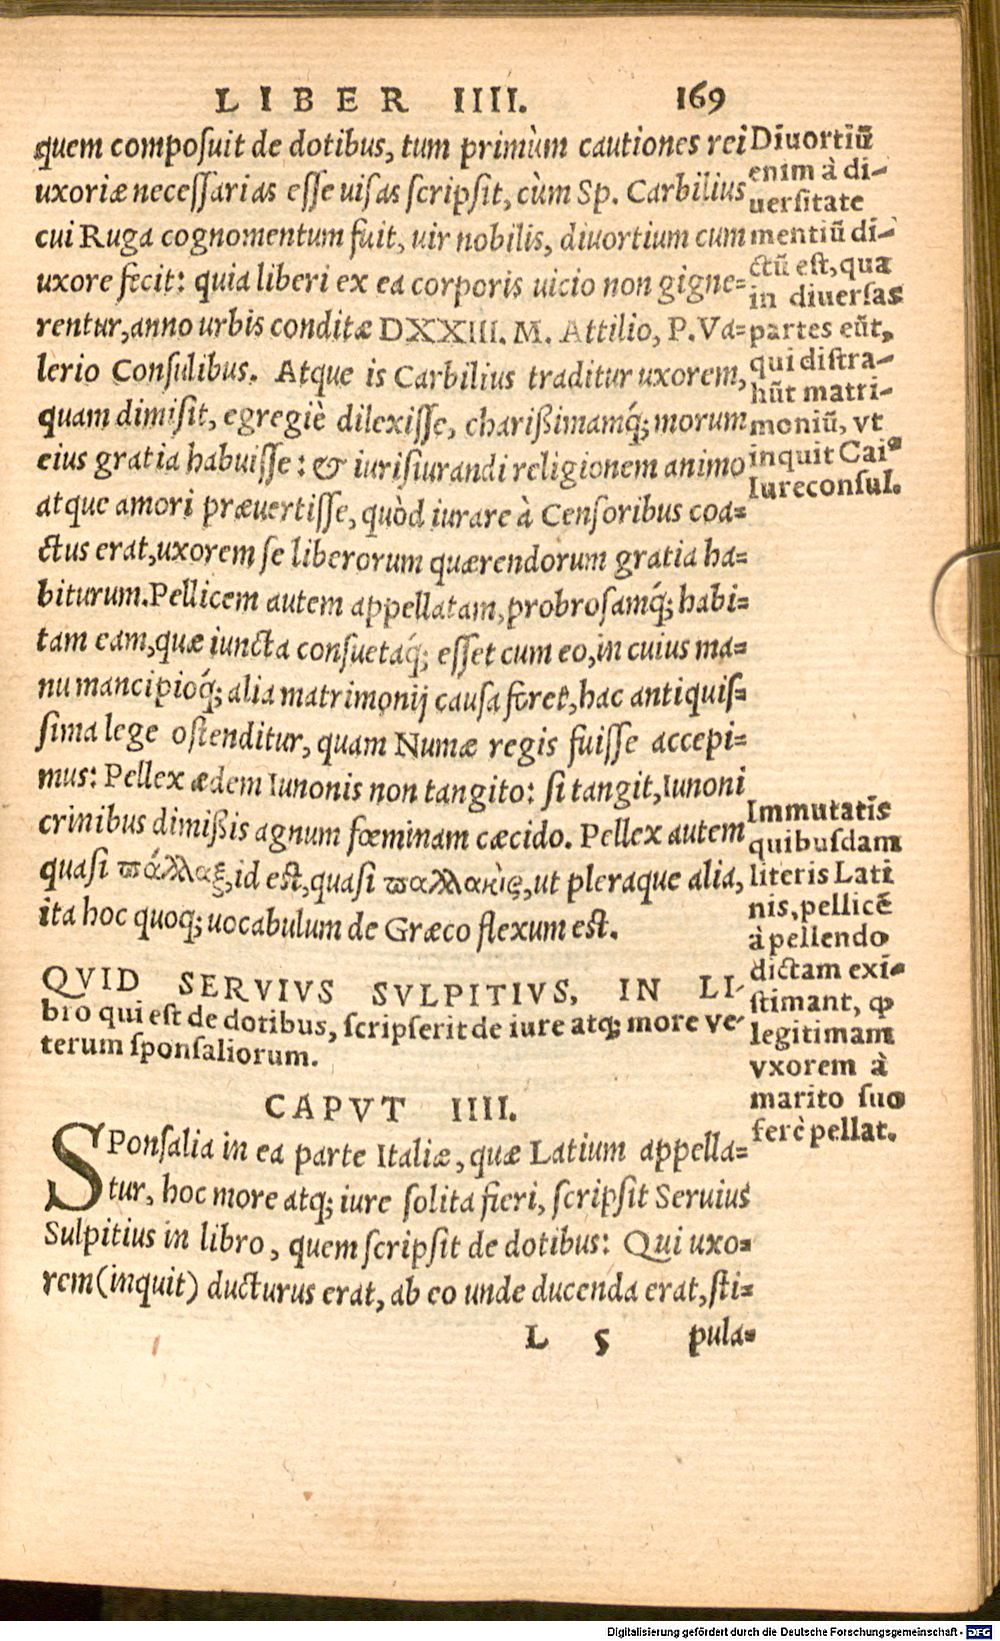 LIBER IIII. 169
quem composuit de dotibus, tum primùm cautiones rei
uxoriæ necessarias esse uisas scripsit, cùm Sp. Carbilius
cui Ruga cognomentum fuit, uir nobilis, diuortium cum
uxore fecit: quia liberi ex ea corporis uicio non gigne=
rentur, anno urbis conditæ DXXIII. M. Attilio, P. Va=
lerio Consulibus. Atque is Carbilius traditur uxorem,
quam dimisit, egregiè dilexisse, charißimamq́; morum
eius gratia habuisse: & iurisiurandi religionem animo
atque amori præuertisse, quòd iurare à Censoribus coa=
ctus erat, uxorem se liberorum quærendorum gratia ha=
biturum. Pellicem autem appellatam, probrosamq́; habi=
tam eam, quæ iuncta consuetaq́; esset cum eo, in cuius ma=
nu mancipioq́; alia matrimonij causa foret, hac antiquis=
sima lege ostenditur, quam Numæ regis fuisse accepi=
mus: Pellex ædem Iunonis non tangito: si tangit, Iunoni
crinibus dimißis agnum fœminam cæcido. Pellex autem
quasi πάλλαξ, id est, quasi παλλακὶς, ut pleraque alia,
ita hoc quoq; uocabulum de Græco flexum est.
Diuortiũ
enim à di-
uersitate
mentiũ di-
ctũ est, qua
in diuersas
partes eũt,
qui distra-
hũt matri-
moniũ, vt
inquit Cai9
Iureconsul.
Immutatis
quibusdam
literis Lati
nis, pellicẽ
à pellendo
dictam exi-
stimant, ꝙ
legitimam
vxorem à
marito suo
ferè pellat.
QVID SERVIVS SVLPITIVS, IN LI-
bro qui est de dotibus, scripserit de iure atq; more ve-
terum sponsaliorum.
CAPVT IIII.
SPonsalia in ea parte Italiæ, quæ Latium appella=
tur, hoc more atq; iure solita fieri, scripsit Seruius
Sulpitius in libro, quem scripsit de dotibus: Qui uxo=
rem (inquit) ducturus erat, ab eo unde ducenda erat, sti=
L 5 pula=
Digitalisierung gefördert durch die Deutsche Forschungsgemeinschaft - DFG